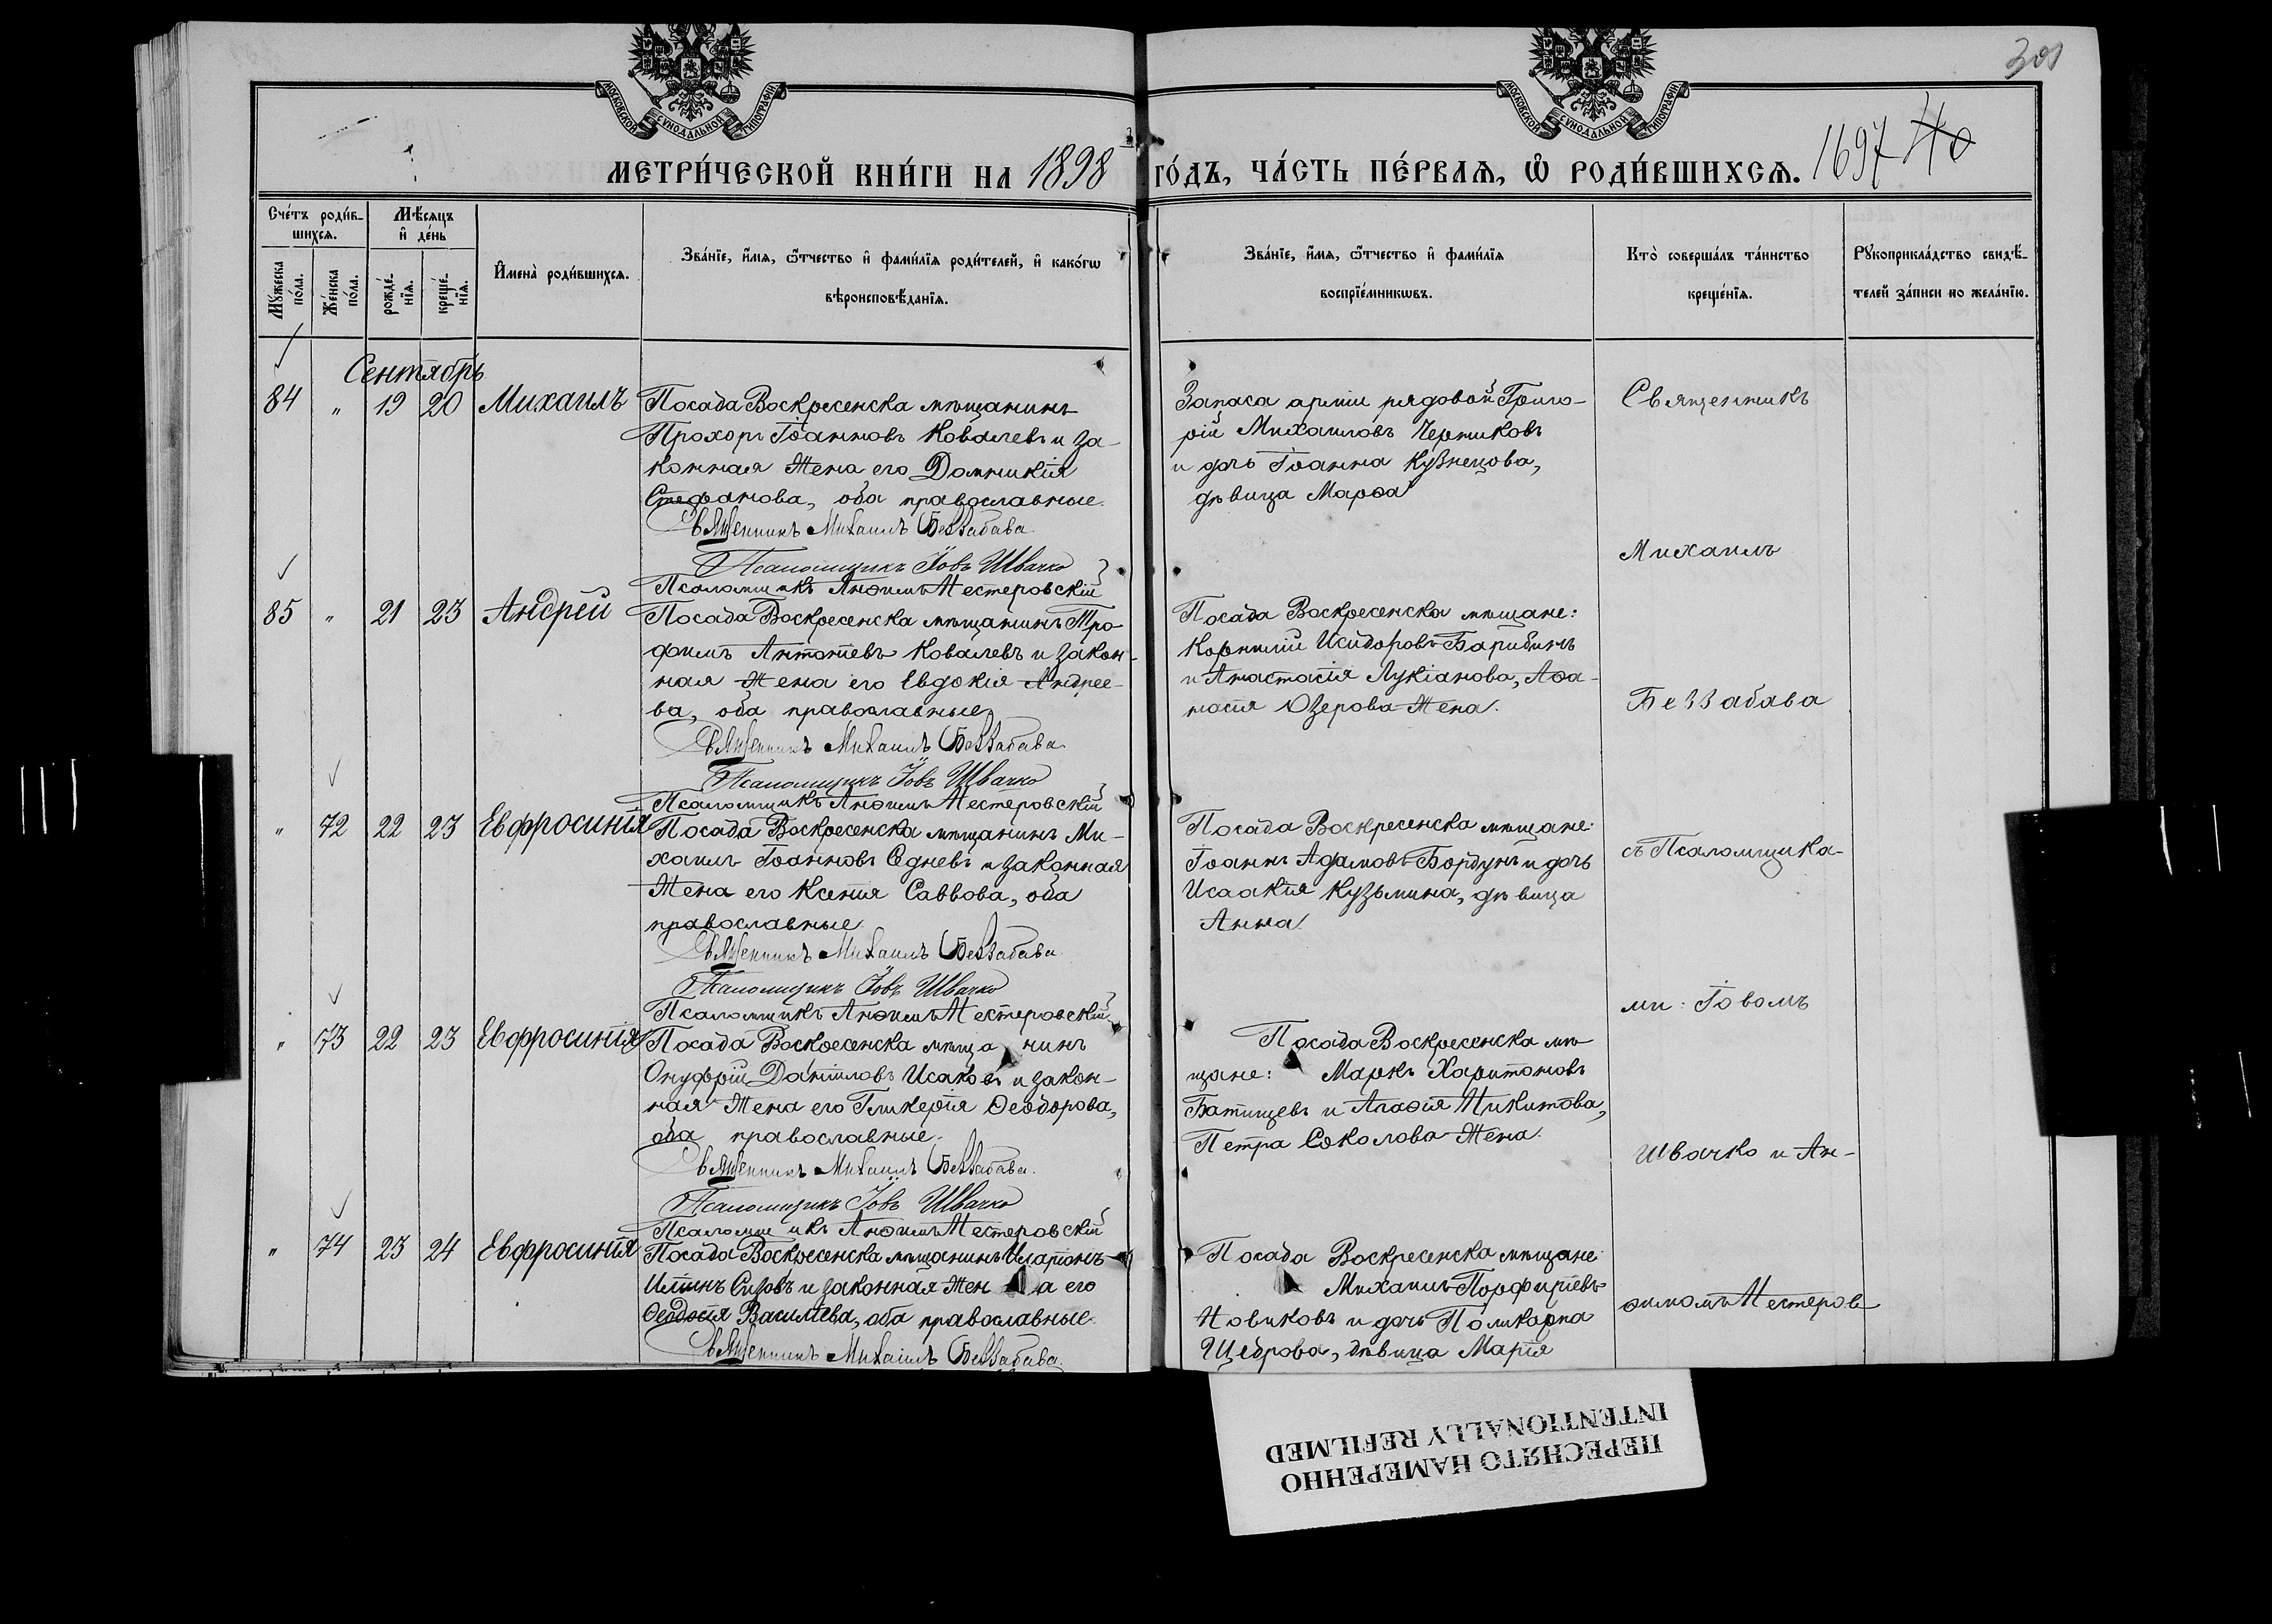 301
МОСКОВСКОЙ СУНОДАЛЬНОЙ ТИПОГРАФІИ
МОСКОВСКОЙ СУНОДАЛЬНОЙ ТИПОГРАФІИ
МЕТРИ́ЧЕСКОЙ КНИ́ГИ НА 1898 ГО́ДЪ, ЧА́СТЬ ПЕ́РВАѦ, Ѡ҆ РОДИ́ВШИХСѦ. 1697 40
Сче́тъ роди́в-
шихсѧ.
Мѣ́сѧцъ
и҆ де́нь
Му́жеска
по́ла.
Же́нска
по́ла.
рожде́-
нїѧ.
креще́-
нїѧ.
И҆мена̀ роди́вшихсѧ.
Зва́нїе, и҆́мѧ, ѻ҆́тчество и҆ фами́лїѧ роди́телей, и҆ како́гѡ
вѣроисповѣ́данїѧ.
Зва́нїе, и҆́мѧ, ѻ҆́тчество и҆ фами́лїѧ
воспрїе́мникѡвъ.
Кто̀ соверша́лъ та́инство
креще́нїѧ.
Рꙋкоприкла́дство свидѣ́-
телей за́писи по жела́нїю.
Сентябрь
84 " 19 20 Михаилъ
Посада Воскресенска мѣщанинъ
Прохоръ Іоанновъ Ковалевъ и за-
конная жена его Домникія
Стефанова, оба православные.
Священникъ Михаилъ Беззабава
Псаломщикъ Іовъ Швачко
Псаломщикъ Анѳимъ Нестеровскій
Запаса арміи рядовой Григо-
рій Михаиловъ Черниковъ
и дочь Іоанна Кузнецова,
дѣвица Марѳа
Священникъ
Михаилъ
85 " 21 23 Андрей
Посада Воскресенска мѣщанинъ Тро-
фимъ Антоніевъ Ковалевъ и закон-
ная жена его Евдокія Андрее-
ва, оба православные
Священникъ Михаилъ Беззабава
Псаломщикъ Іовъ Швачко
Псаломщикъ Анѳимъ Нестеровскій
Посада Воскресенска мѣщане:
Корнилій Исидоровъ Барибинъ
и Анастасія Лукіанова, Аѳа-
насія Озерова жена.
Беззабава
" 72 22 23 Евфросинія
Посада Воскресенска мѣщанинъ Ми-
хаилъ Іоанновъ Седневъ и законная
жена его Ксенія Саввова, оба
православные.
Священникъ Михаилъ Беззабава
Псаломщикъ Іовъ Швачко
Псаломщикъ Анѳимъ Нестеровскій
Посада Воскресенска мѣщане:
Іоаннъ Адамовъ Бордунъ и дочь
Исаакія Кузьмина, дѣвица
Анна.
съ Псаломщика-
ми: Іовомъ
" 73 22 23 Евфросинія
Посада Воскресенска мѣщанинъ
Онуфрій Даніиловъ Исаковъ и закон-
ная жена его Гликерія Ѳеодорова,
оба православные.
Священникъ Михаилъ Беззабава.
Псаломщикъ Іовъ Швачко
Псаломщикъ Анѳимъ Нестеровскій
Посада Воскресенска мѣ-
щане: Маркъ Харитоновъ
Батищевъ и Агаѳія Никитова,
Петра Соколова жена.
Швачко и Ан-
" 74 23 24 Евфросинія
Посада Воскресенска мѣщанинъ Иларіонъ
Иліинъ Сизовъ и законная жена его
Ѳеодосія Васильева, оба православные.
Священникъ Михаилъ Беззабава.
Посада Воскресенска мѣщане
Михаилъ Порфиріевъ
Новиковъ и дочь Поликарпа
Щедрова, дѣвица Марія
ѳимомъ Нестеров-
ПЕРЕСНЯТО НАМЕРЕННО
INTENTIONALLY REFILMED